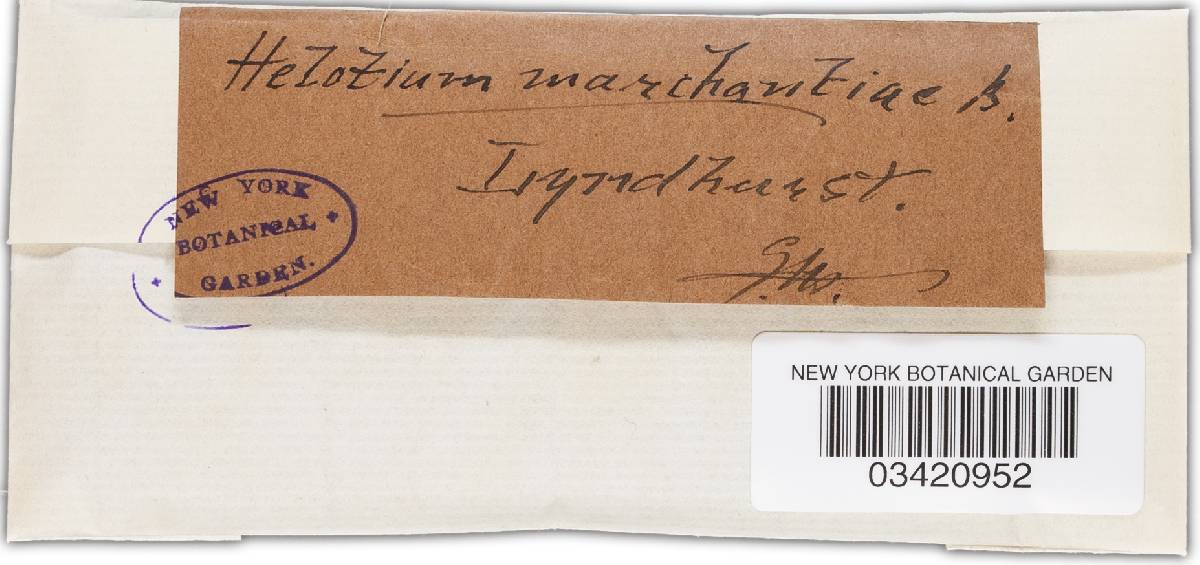 Helotium marchantiae B.
Lyndhurst.
NEW YORK
BOTANICAL
GARDEN.
NEW YORK BOTANICAL GARDEN
03420952